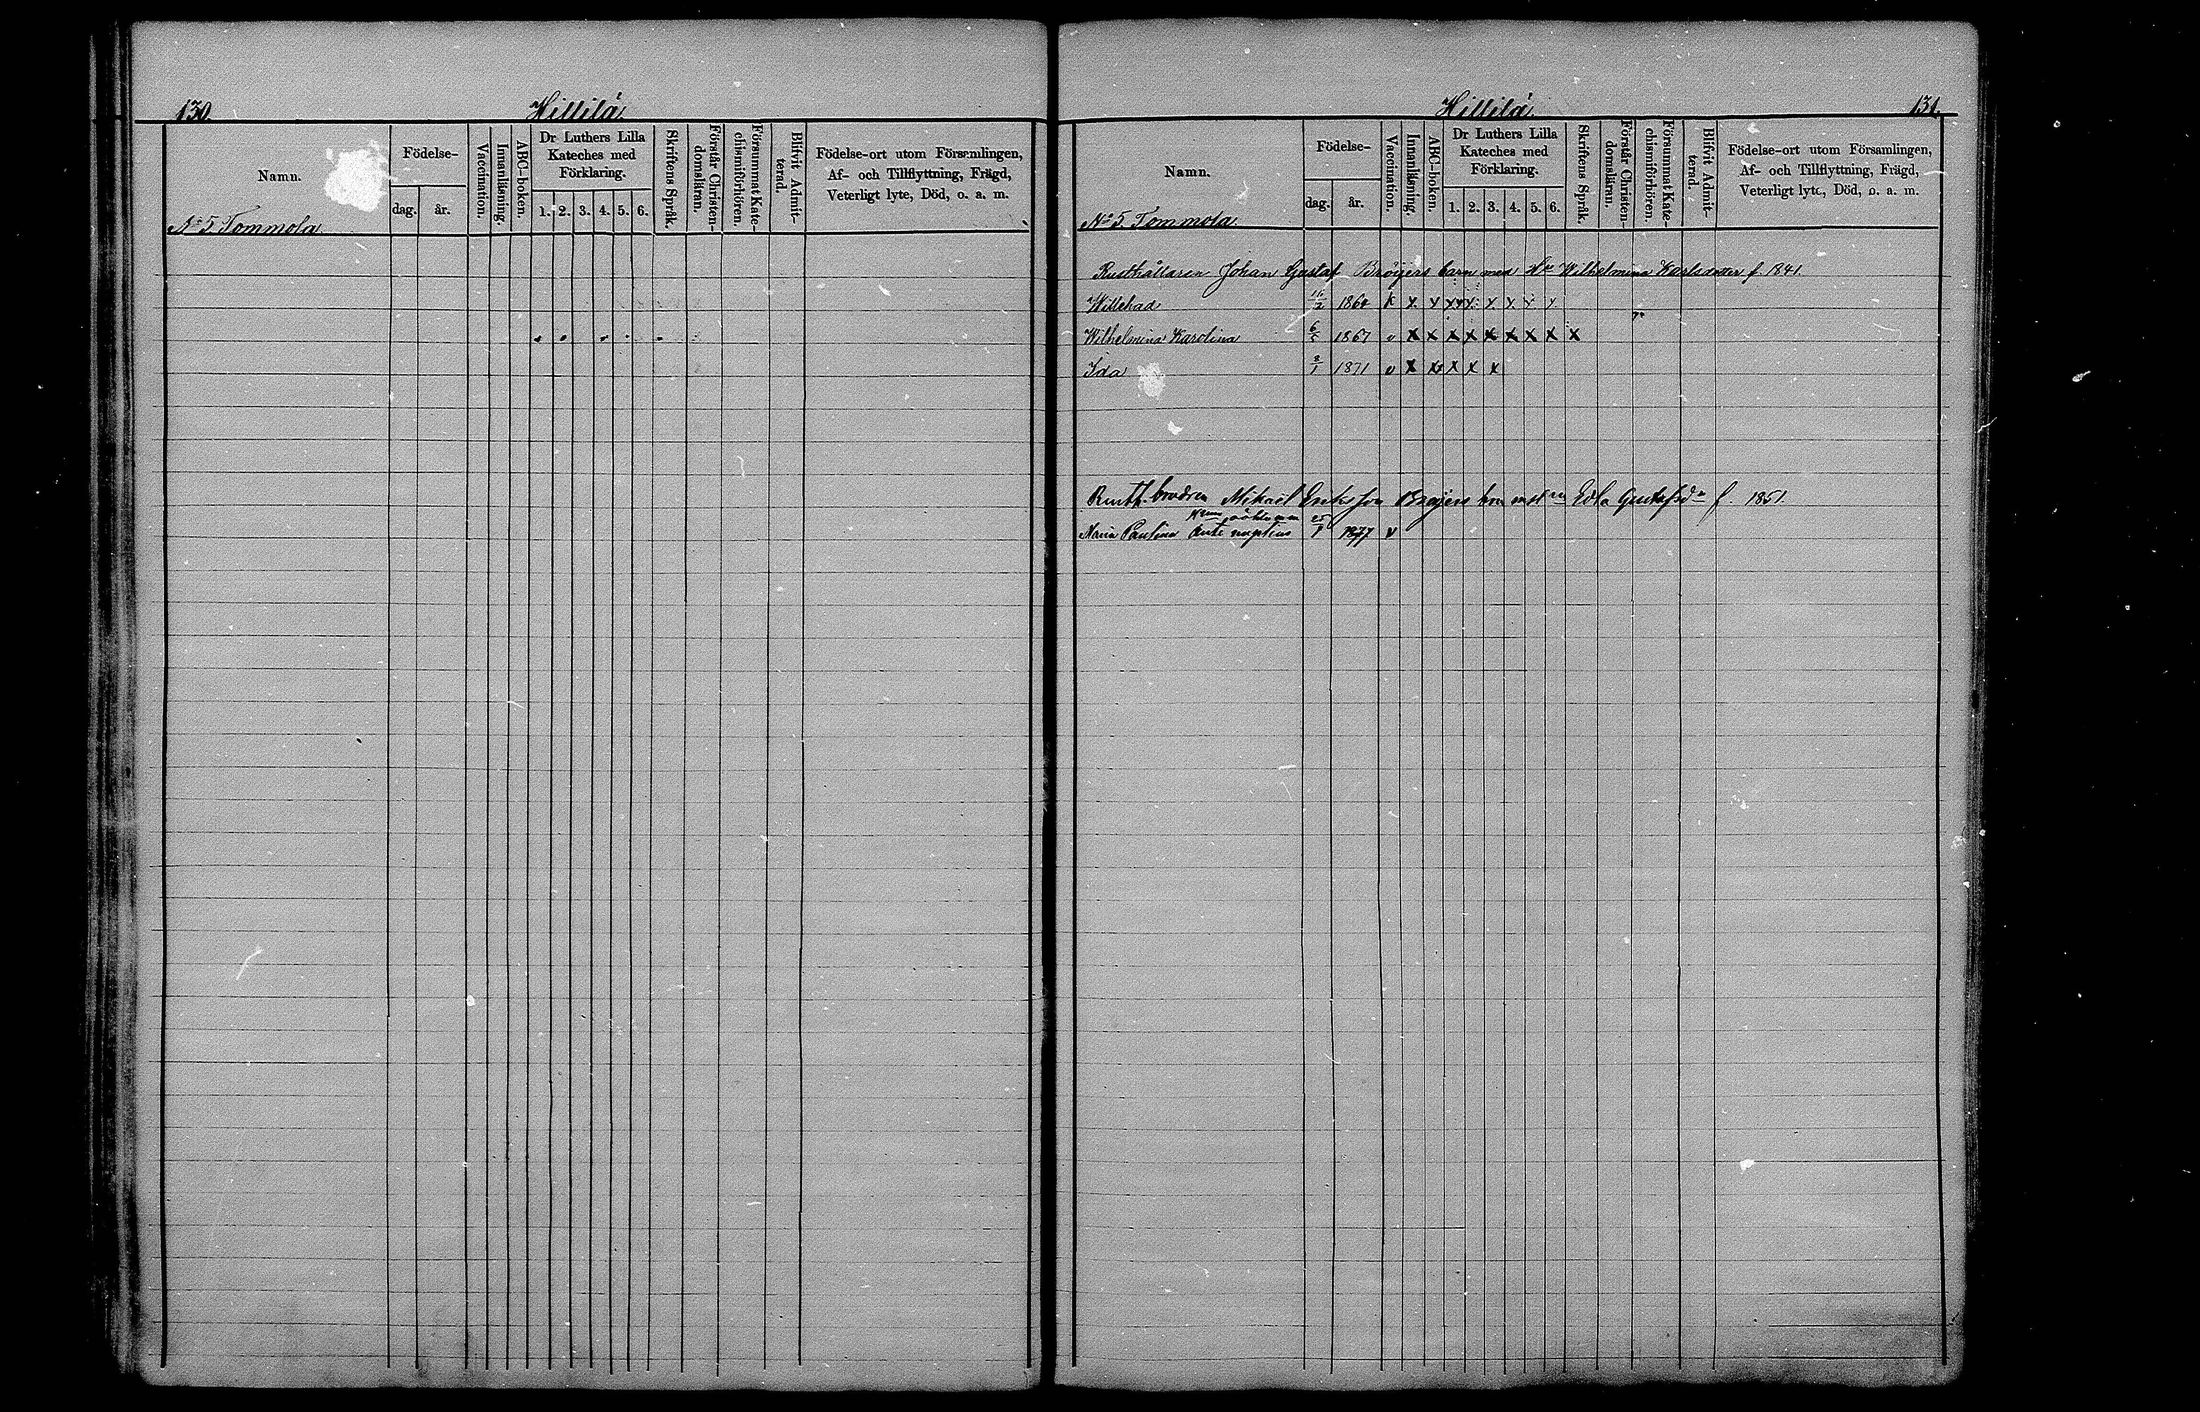 130. Hillilä.
Namn.
Födelse-
dag. år.
Vaccination.
Innanläsning.
ABC-boken.
Dr Luthers Lilla
Kateches med
Förklaring.
1. 2. 3. 4. 5. 6.
Skriftens Språk.
Förstår Christen-
domsläran.
Försummat Kate-
chismiförhören.
Blifvit Admit-
terad.
Födelse-ort utom Församlingen,
Af- och Tillflyttning, Frägd,
Veterligt lyte, Död, o. a. m.
No 5 Tommola
Hillilä. 131.
Namn.
Födelse-
dag. år.
Vaccination.
Innanläsning.
ABC-boken.
Dr Luthers Lilla
Kateches med
Förklaring.
1. 2. 3. 4. 5. 6.
Skriftens Språk.
Förstår Christen-
domsläran.
Försummat Kate-
chismiförhören.
Blifvit Admit-
terad.
Födelse-ort utom Församlingen,
Af- och Tillflyttning, Frägd,
Veterligt lyte, Död, o. a. m.
No 5. Tommola.
Rusthållaren Johan Gustaf Bröijers barn med Wilhelmina Karlsdotter f. 1841.
Willehad 11/2 1864
Wilhelmina Karolina 6/5 1867 v x x x x x x x x x
Ida 8/1 1871 v x x x x x
brodren Mikael Eriksson Edla Gustafsd. f. 1851
Maria Paulina Ante nuptias 1877 v